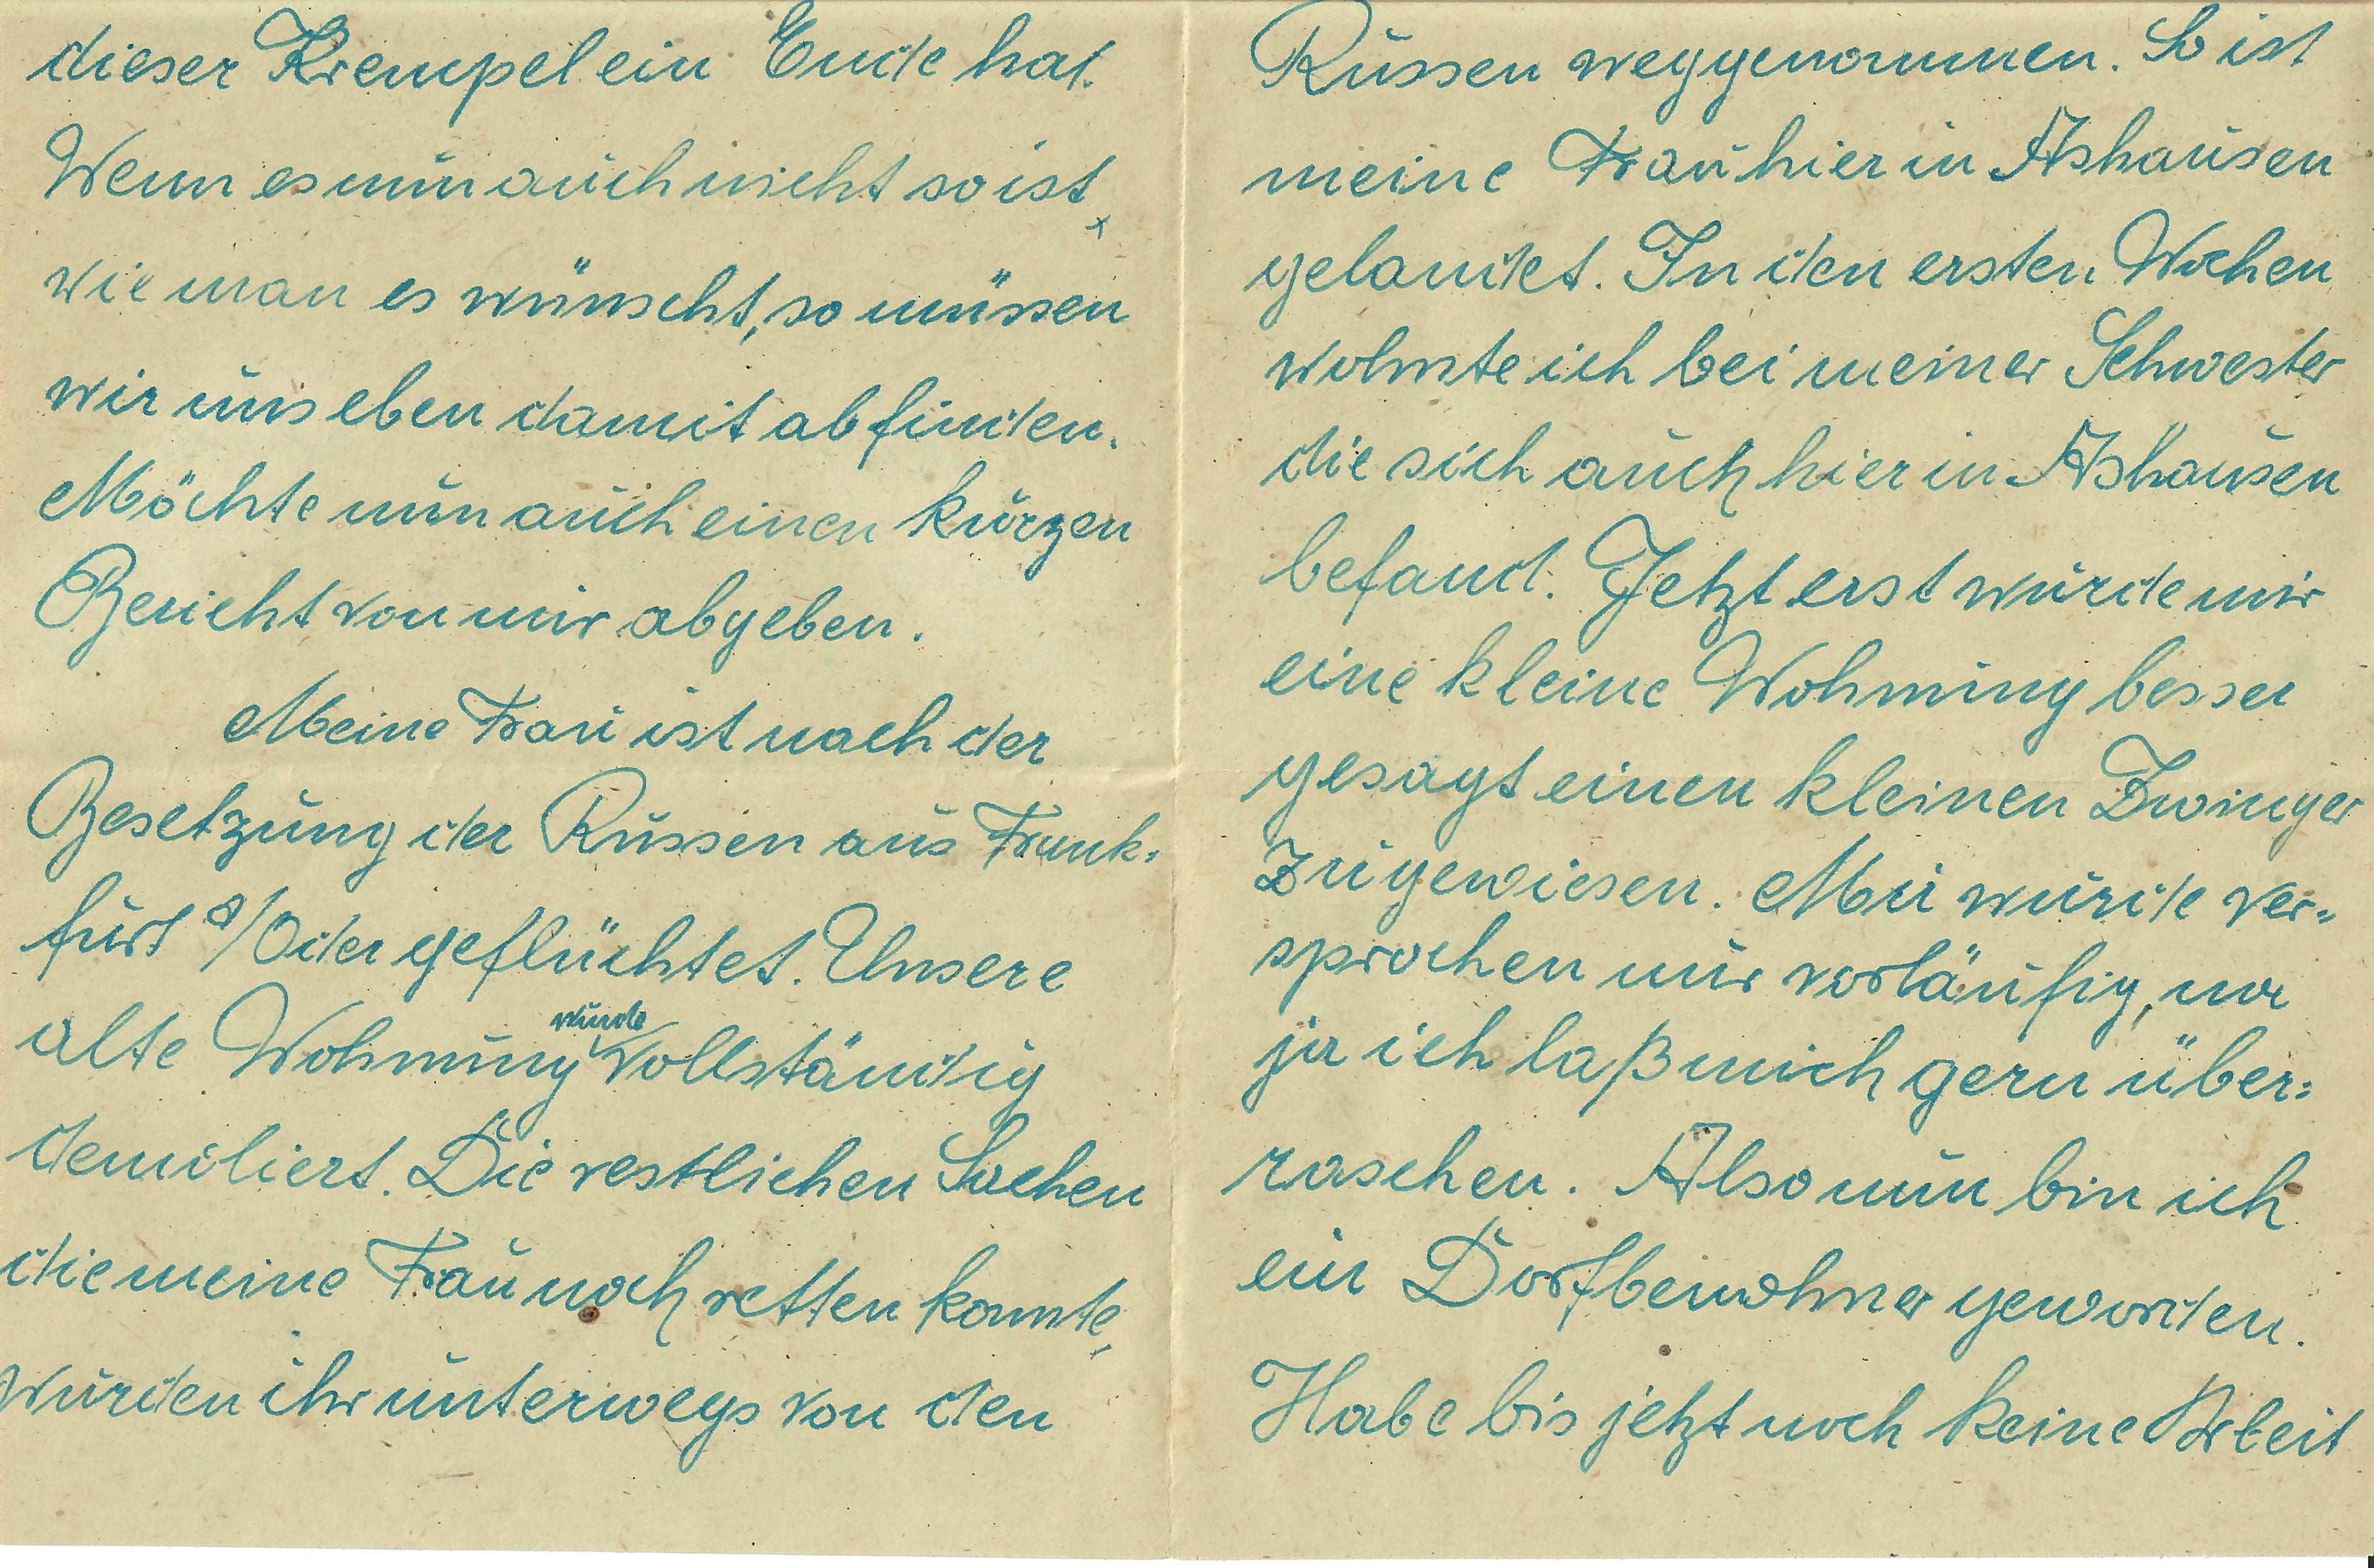 dieser Krempel ein Ende hat.
Wenn es nun auch nicht so ist,
wie man es wünscht, so müssen
wir uns eben damit abfinden.
Möchte nun auch einen kurzen
Bericht von mir abgeben.
Meine Frau ist nach der
Besetzung der Russen aus Frank-
furt a/Oder geflüchtet. Unsere
wurde
alte Wohnung vollständig
demoliert. Die restlichen Sachen
die meine Frau noch retten konnte,
wurden ihr unterwegs von den
Russen weggenommen. So ist
meine Frau hier in Ashausen
gelandet. In den ersten Wochen
wohnte ich bei meiner Schwester
die sich auch hier in Ashausen
befand. Jetzt erst wurde mir
eine kleine Wohnung besser
gesagt einen kleinen Zwinger
zugewiesen. Mir wurde ver-
sprochen nur vorläufig, na
ja ich laß mich gern über-
raschen. Also nun bin ich
ein Dorfbewohner geworden.
Habe bis jetzt noch keine Arbeit